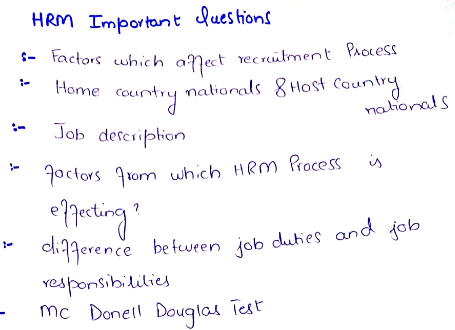 HRM Important Questions
:- Factors which affect recruitment Process
:- Home country nationals & Host Country
nationals
:- Job description
:- Factors from which HRM Process is
effecting?
:- difference between job duties and job
responsibilities
- Mc Donell Douglas Test